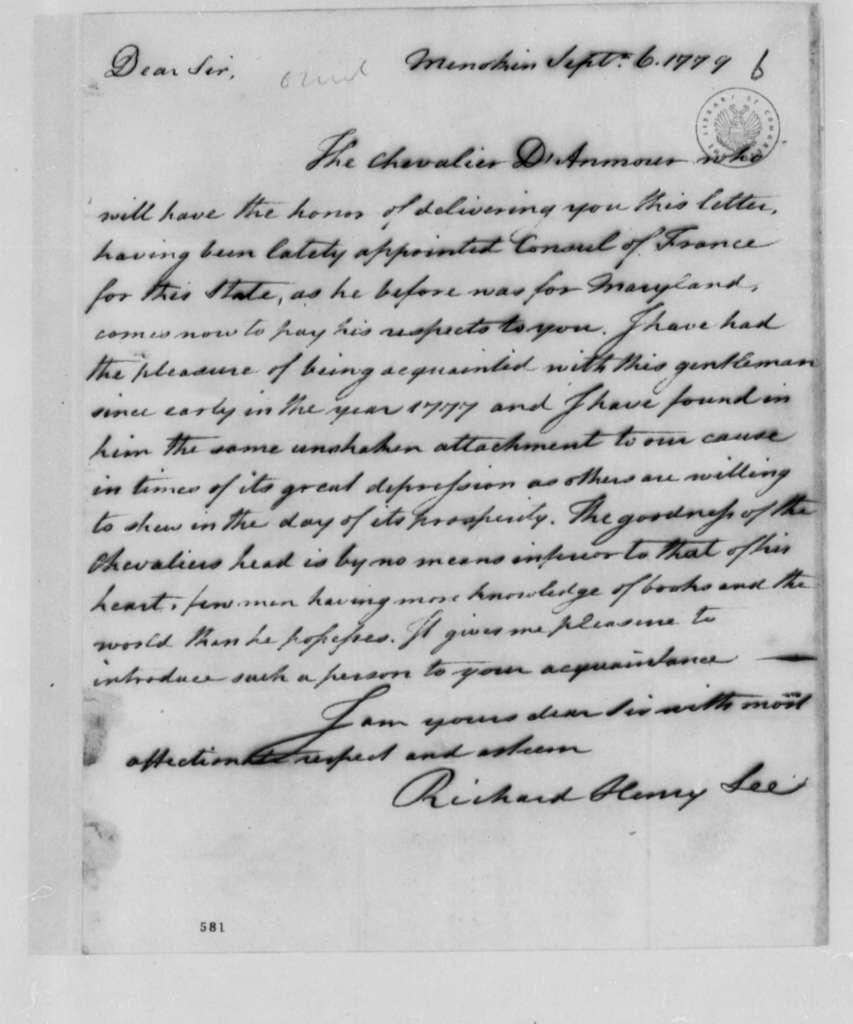 Dear Sir,
Menokin Septr. 6. 1779
6
LIBRARY OF CONGRESS
The Chevalier D'Anmour who
will have the honor of delivering you this letter,
having been lately appointed Consul of France
for this State, as he before was for Maryland,
comes now to pay his respects to you. I have had
the pleasure of being acquainted with this gentleman
since early in the year 1777 and I have found in
him the same unshaken attachment to our cause
in times of its great depression as others are willing
to shew in the day of its prosperity. The goodness of the
Chevaliers head is by no means inferior to that of his
heart, few men having more knowledge of books and the
world than he possesses. It gives me pleasure to
introduce such a person to your acquaintance —
I am yours dear Sir with most
affectionate respect and esteem
Richard Henry Lee
581